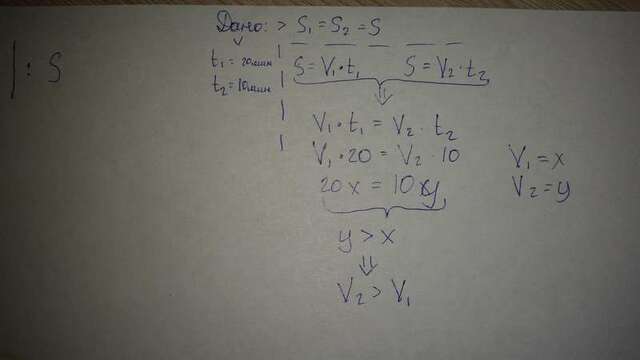 Дано: > S₁ = S₂ = S
t₁ = 20мин
t₂ = 10мин
S = V₁ · t₁ S = V₂ · t₂
⇓
V₁ · t₁ = V₂ · t₂
V₁ · 20 = V₂ · 10
20x = 10xy
y > x
⇓
V₂ > V₁
V₁ = x
V₂ = y
| : S